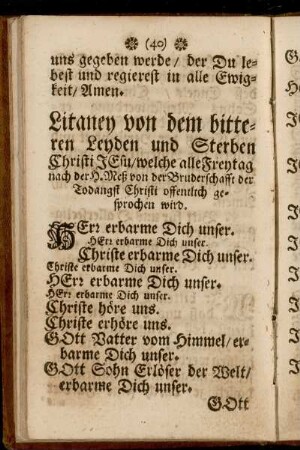 (40)
uns gegeben werde / der Du le-
best und regierest in alle Ewig-
keit / Amen.
Litaney von dem bitte-
ren Leyden und Sterben
Christi JEsu / welche alle Freytag
nach der H. Meß von der Bruderschafft der
Todangst Christi offentlich ge-
sprochen wird.
HErr erbarme Dich unser.
HErr erbarme Dich unser.
Christe erbarme Dich unser.
Christe erbarme Dich unser.
HErr erbarme Dich unser.
HErr erbarme Dich unser.
Christe höre uns.
Christe erhöre uns.
GOtt Vatter vom Himmel / er-
barme Dich unser.
GOtt Sohn Erlöser der Welt /
erbarme Dich unser.
GOtt